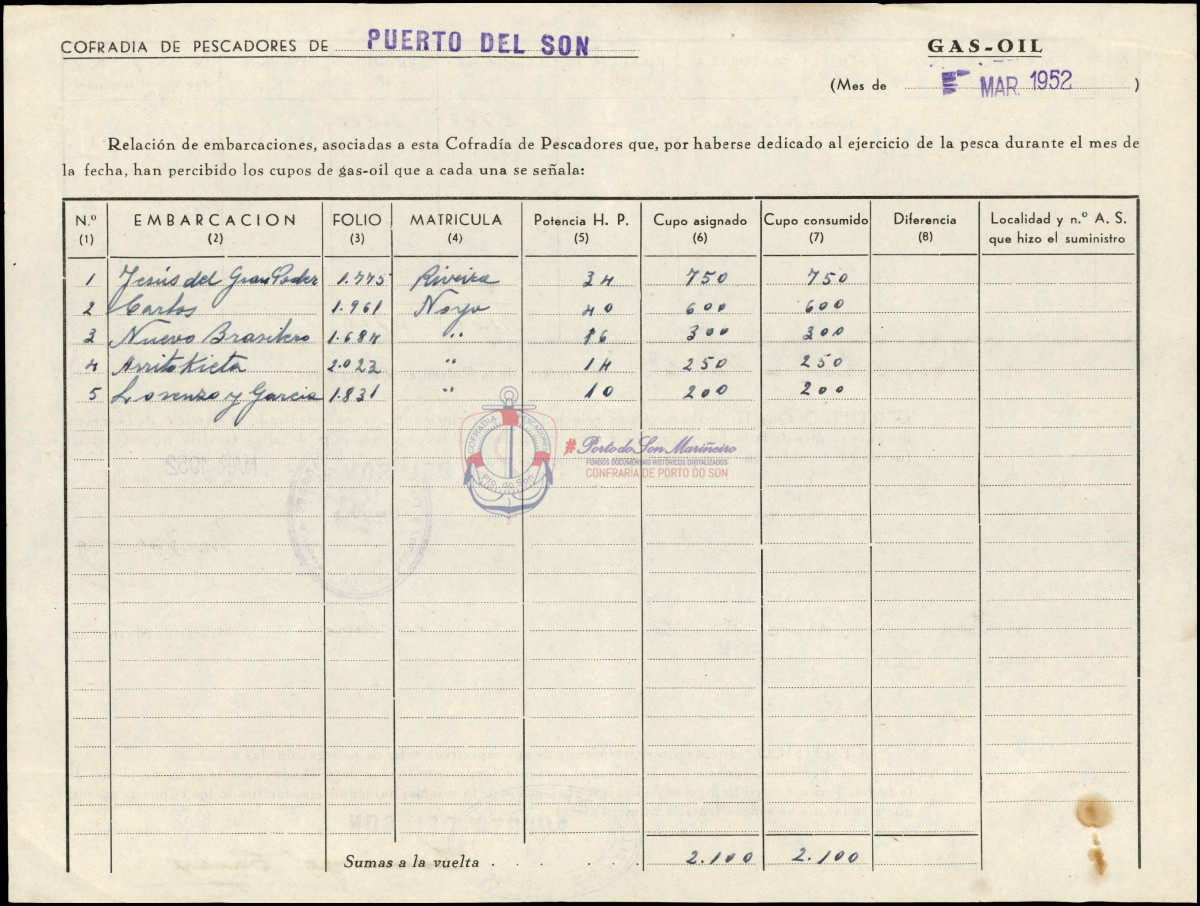 COFRADIA DE PESCADORES DE PUERTO DEL SON
GAS-OIL
(Mes de MAR. 1952 )
Relación de embarcaciones, asociadas a esta Cofradía de Pescadores que, por haberse dedicado al ejercicio de la pesca durante el mes de
la fecha, han percibido los cupos de gas-oil que a cada una se señala:
N.º EMBARCACION FOLIO MATRICULA Potencia H. P. Cupo asignado Cupo consumido Diferencia Localidad y n.º A. S.
(1) (2) (3) (4) (5) (6) (7) (8) que hizo el suministro
1 Jesús del Gran Poder 1.775 Riveira 34 750 750
2 Carlos 1.961 Noya 40 600 600
3 Nuevo Brasilero 1.684 " 16 300 300
4 Arritokieta 2.023 " 14 250 250
5 Lorenzo y Garcia 1.831 " 10 200 200
COFRADIA PESCADORES
Pto. do Son
#Porto do Son Mariñeiro
FONDOS DOCUMENTAIS HISTÓRICOS DIGITALIZADOS
CONFRARÍA DE PORTO DO SON
MAR 1952
Sumas a la vuelta . . . . . 2.100 2.100